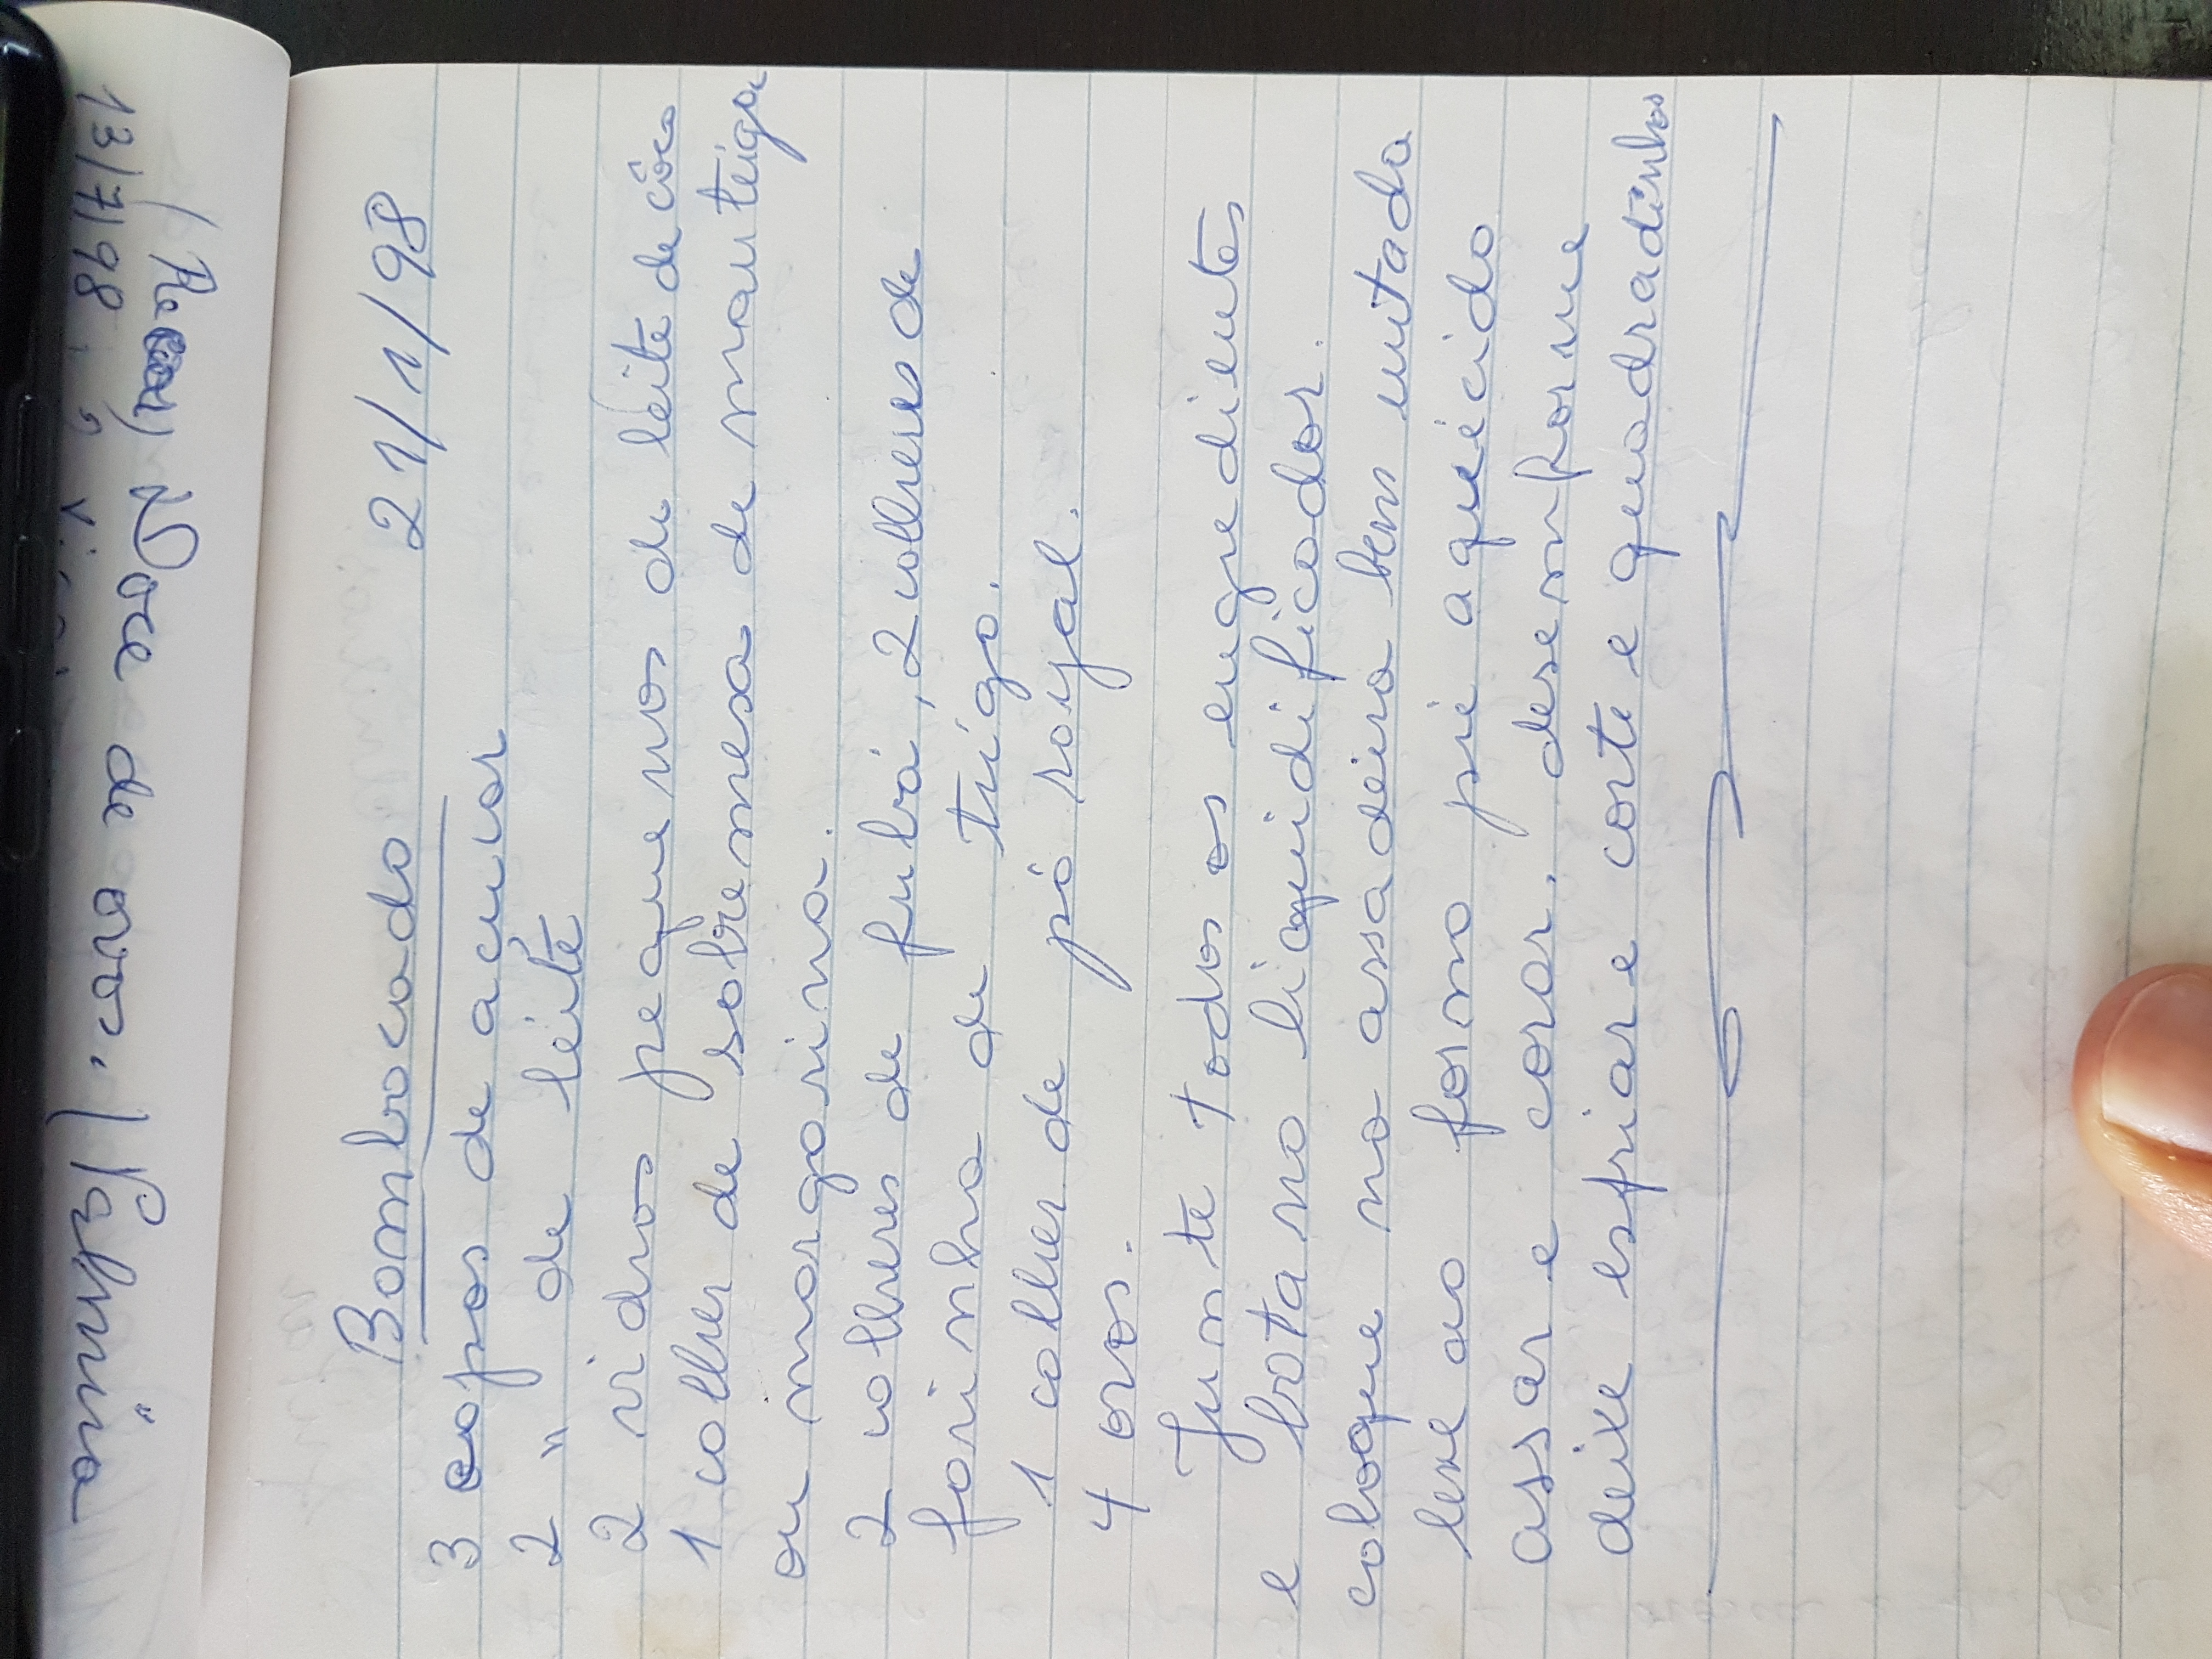 13/7/98
Doce de ovos.
Bombocado 21/1/98
3 copos de açucar
2 " de leite
2 vidros pequenos de leite de côco
1 colher de sobremesa de manteiga
ou margarina.
2 colheres de fubá, 2 colheres de
farinha de trigo.
1 colher de pó royal.
4 ovos.
Junte todos os engredientes
e bota no liquidificador.
coloque na assadeira bem untada
leve ao forno pré aquécido
assar e corar. desemforme
deixe esfriar e corte e quadradinhos